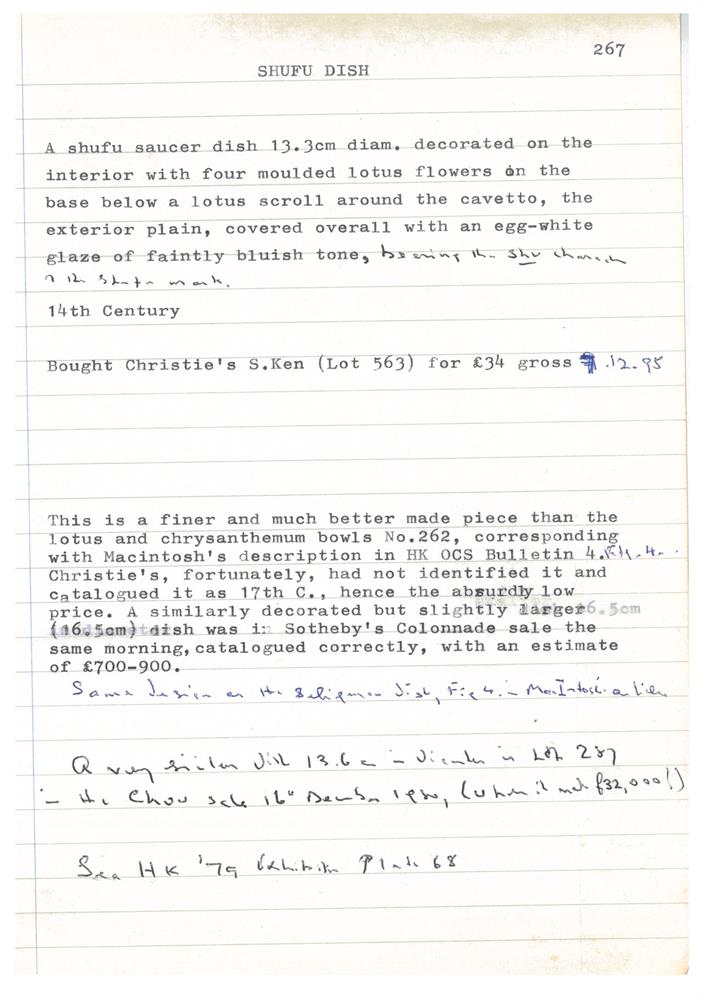 267
SHUFU DISH
A shufu saucer dish 13.3cm diam. decorated on the
interior with four moulded lotus flowers on the
base below a lotus scroll around the cavetto, the
exterior plain, covered overall with an egg-white
glaze of faintly bluish tone, bearing the shu
mark.
14th Century
Bought Christie's S.Ken (Lot 563) for £34 gross .12.95
This is a finer and much better made piece than the
lotus and chrysanthemum bowls No.262, corresponding
with Macintosh's description in HK OCS Bulletin 4.
Christie's, fortunately, had not identified it and
catalogued it as 17th C., hence the absurdly low
price. A similarly decorated but slightly larger
(16.5cm) dish was in Sotheby's Colonnade sale the
same morning, catalogued correctly, with an estimate
of £700-900.
Same design as the Seligman dish, Fig 4. in MacIntosh article
A very similar dish 13.6 cm in diameter is Lot 287
in the Chou sale 16" December 1980, (when it made £32,000!)
See HK '79 Exhibition Plate 68